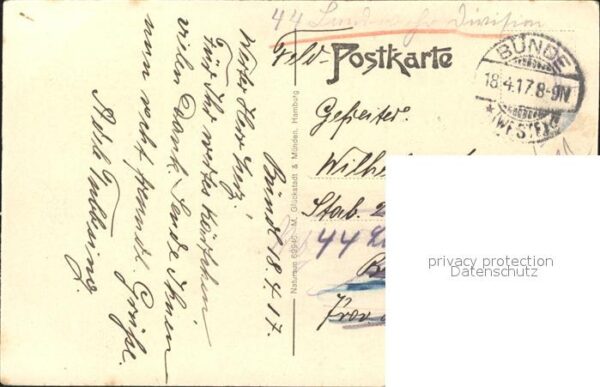 44 Landwehr Division
Feld- Postkarte
BÜNDE
18.4.17.8-9N
*(WESTF.)
Gefreiter
Wilhe
Stab. 2
44
Prov.
Naturson 62946 M. Glückstadt & Münden, Hamburg
Bünde 18.4.17.
Werter Herr
Für Ihr wertes Kärtchen
vielen Dank. Sende Ihnen
nun recht freundl. Grüße.
privacy protection
Datenschutz